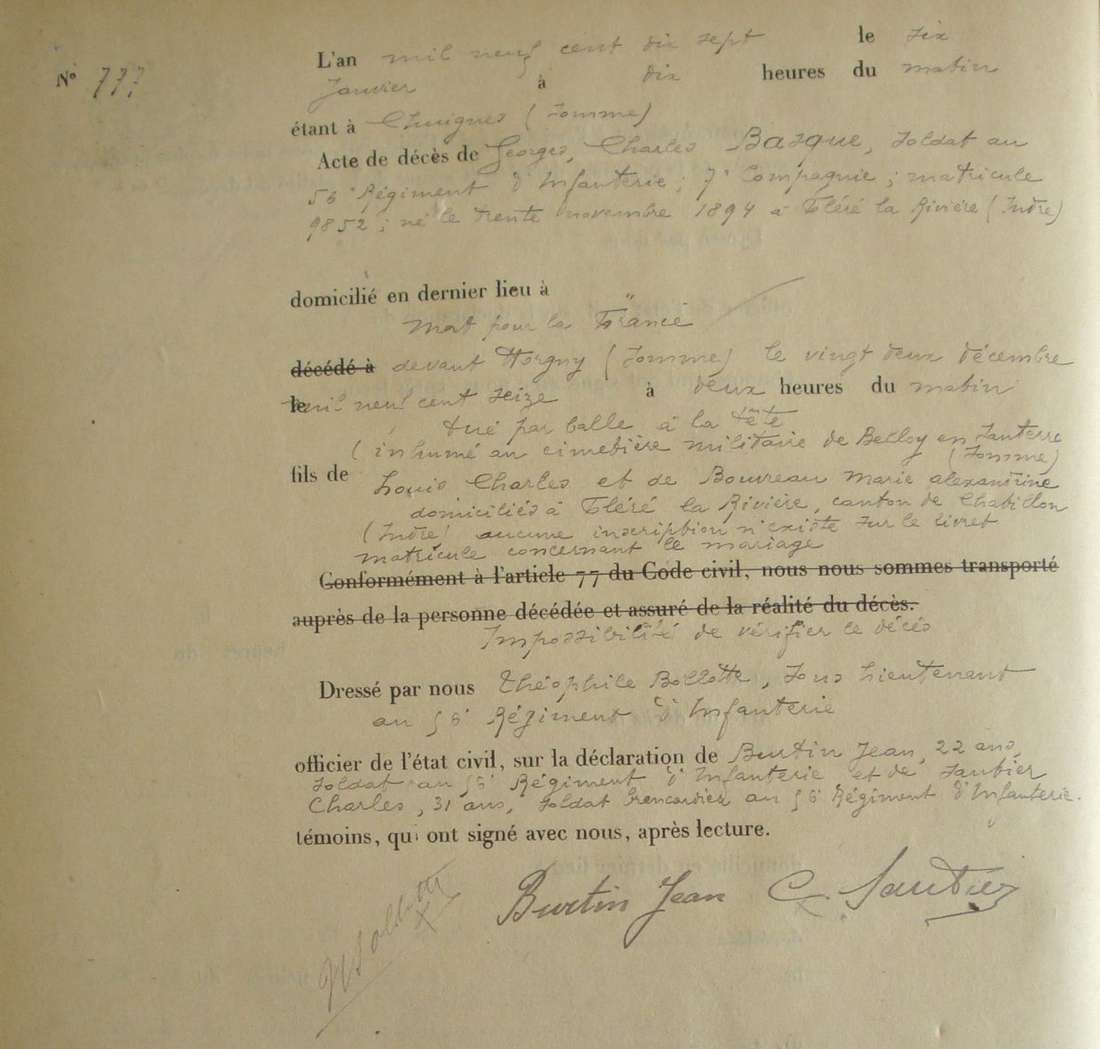 L'an mil neuf cent dix sept le six
N° 777
Janvier à dix heures du matin
étant à Chuignes (Somme)
Acte de décès de Georges, Charles Basque, soldat au
56e Régiment d'Infanterie; 7e Compagnie; matricule
9852; né le trente novembre 1894 à Cléré la Rivière (Indre)
domicilié en dernier lieu à "
Mort pour la France
décédé à devant Horgny (Somme) le vingt deux décembre
le mil neuf cent seize à deux heures du matin
tué par balle à la tête
(inhumé au cimetière militaire de Belloy en Santerre
(Somme)
fils de Louis Charles et de Bouvreau Marie alexandrine
domiciliés à Cléré la Rivière, canton de Chatillon
(Indre) aucune inscription n'existe sur le livret
matricule concernant le mariage
Conformément à l'article 77 du Code civil, nous nous sommes transporté
auprès de la personne décédée et assuré de la réalité du décès.
Impossibilité de vérifier le décès
Dressé par nous Théophile Bollotte, Sous Lieutenant
au 56e Régiment d'Infanterie
officier de l'état civil, sur la déclaration de Burtin Jean, 22 ans,
soldat au 56e Régiment d'Infanterie et de Saubier
Charles, 31 ans, soldat brancardier au 56e Régiment d'Infanterie.
témoins, qui ont signé avec nous, après lecture.
Burtin Jean C. Saubier